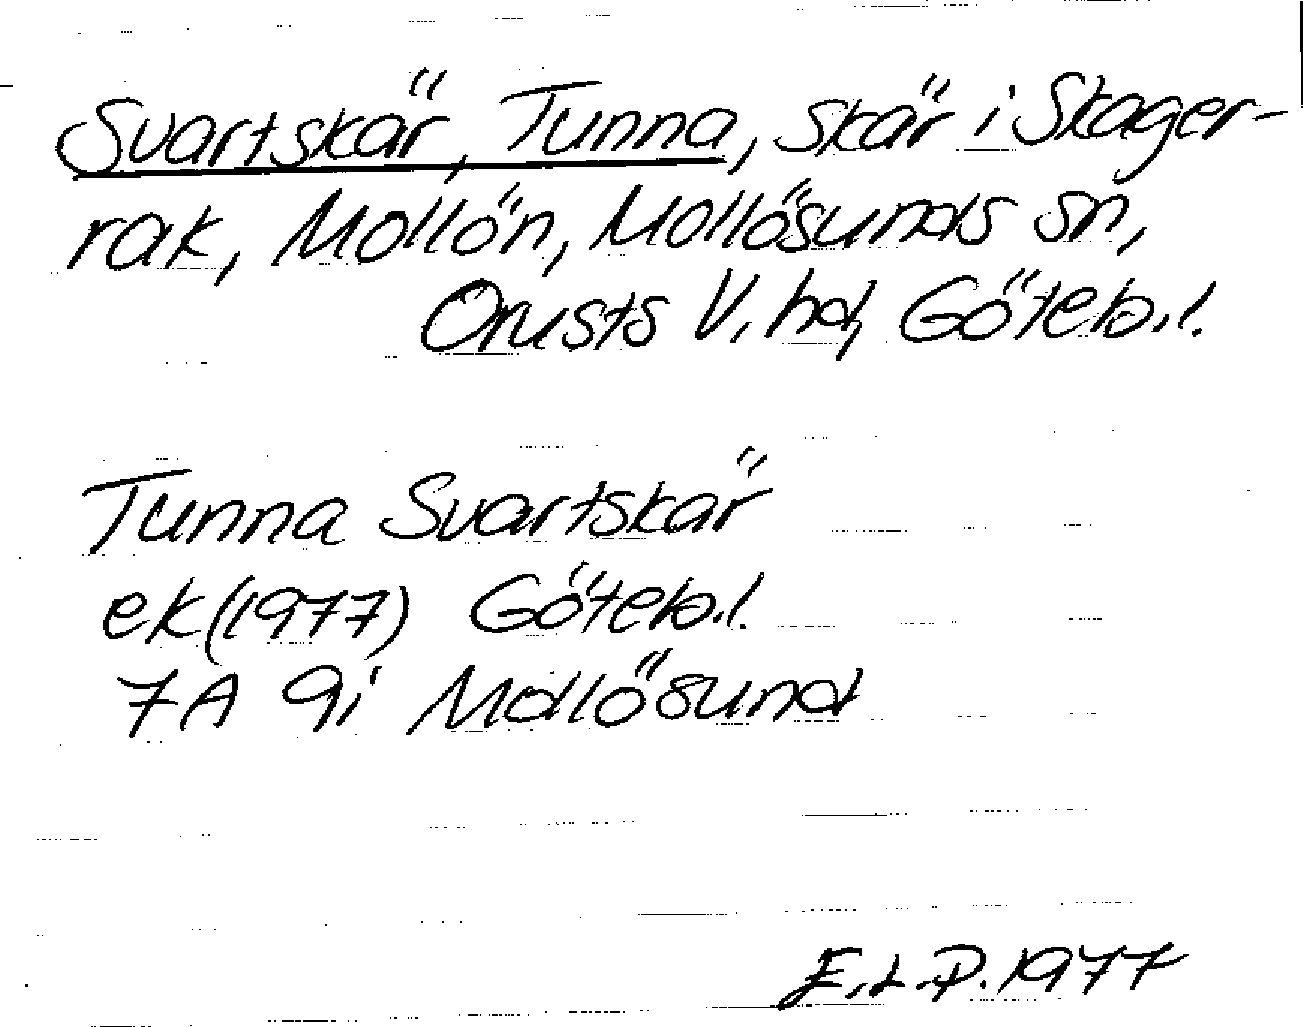 Svartskär, Tunna, skär i Skager-
rak, Mollön, Mollösunds sn,
Orusts V. hd, Göteb.l.
Tunna Svartskär
ek (1977) Göteb.l.
7A 9i Mollösund
E.L.P. 1977